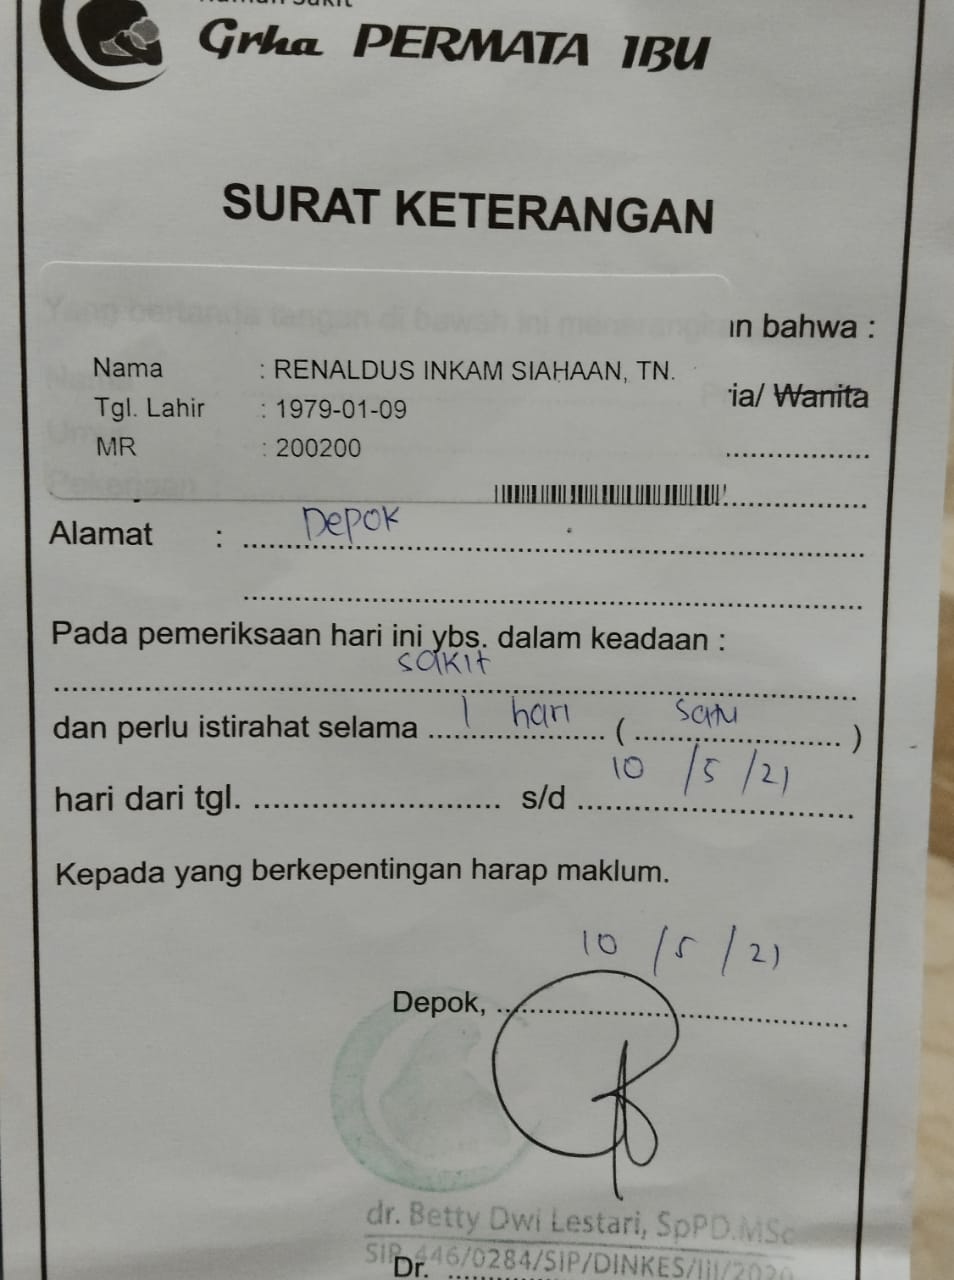 Rumah Sakit
Grha PERMATA IBU
SURAT KETERANGAN
Yang bertanda tangan di bawah ini menerangkan bahwa :
Nama : RENALDUS INKAM SIAHAAN, TN.
ria/ Wanita
Tgl. Lahir : 1979-01-09
MR : 200200
Pekerjaan
Alamat : Depok
Pada pemeriksaan hari ini ybs. dalam keadaan :
sakit
dan perlu istirahat selama 1 hari ( satu )
hari dari tgl. s/d 10/5/21
Kepada yang berkepentingan harap maklum.
Depok, 10/5/21
dr. Betty Dwi Lestari, SpPD.MSc
SIP 446/0284/SIP/DINKES/III/2020
Dr.